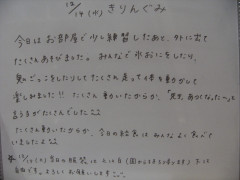 12/14(水) きりんぐみ
今日はお部屋で少し練習したあと、外に出て
たくさんあそびました。みんなで氷おにをしたり、
鬼ごっこをしたりしてたくさん走って体を動かして
楽しみました!! たくさん動いたからか、「先生、あつくなったー」と
言う子がたくさんでした
たくさん動いたからか、今日の給食はみんなよく食べて
いましたよ
※ 12/15(木) 日の
お願いします